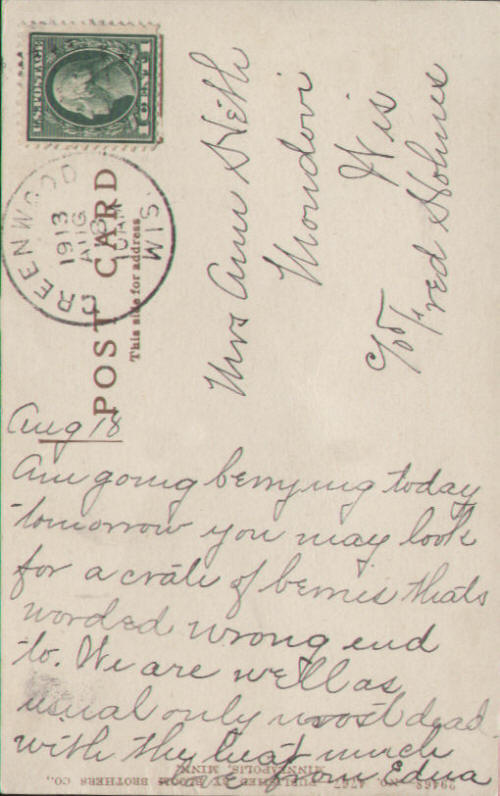 U.S. POSTAGE
1 CENT 1
GREENWOOD WIS.
AUG 18
10 AM
1913
POST CARD
This side for address
Mrs Ann Heth
Mondovi
Wis
c/o Fred Holmes
Aug 18
Am going berrying today
tomorrow you may look
for a crate of berries thats
worded wrong end
to. We are well as
usual only most dead
with the heat much
love from Edna
PUBLISHED BY BLOOM BROTHERS CO.,
MINNEAPOLIS, MINN.